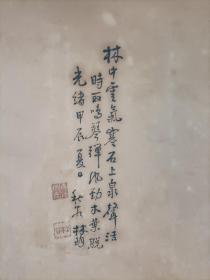 林中雲氣寒石上泉聲活
時而鳴琴彈風動木葉脱
光緒甲辰夏日